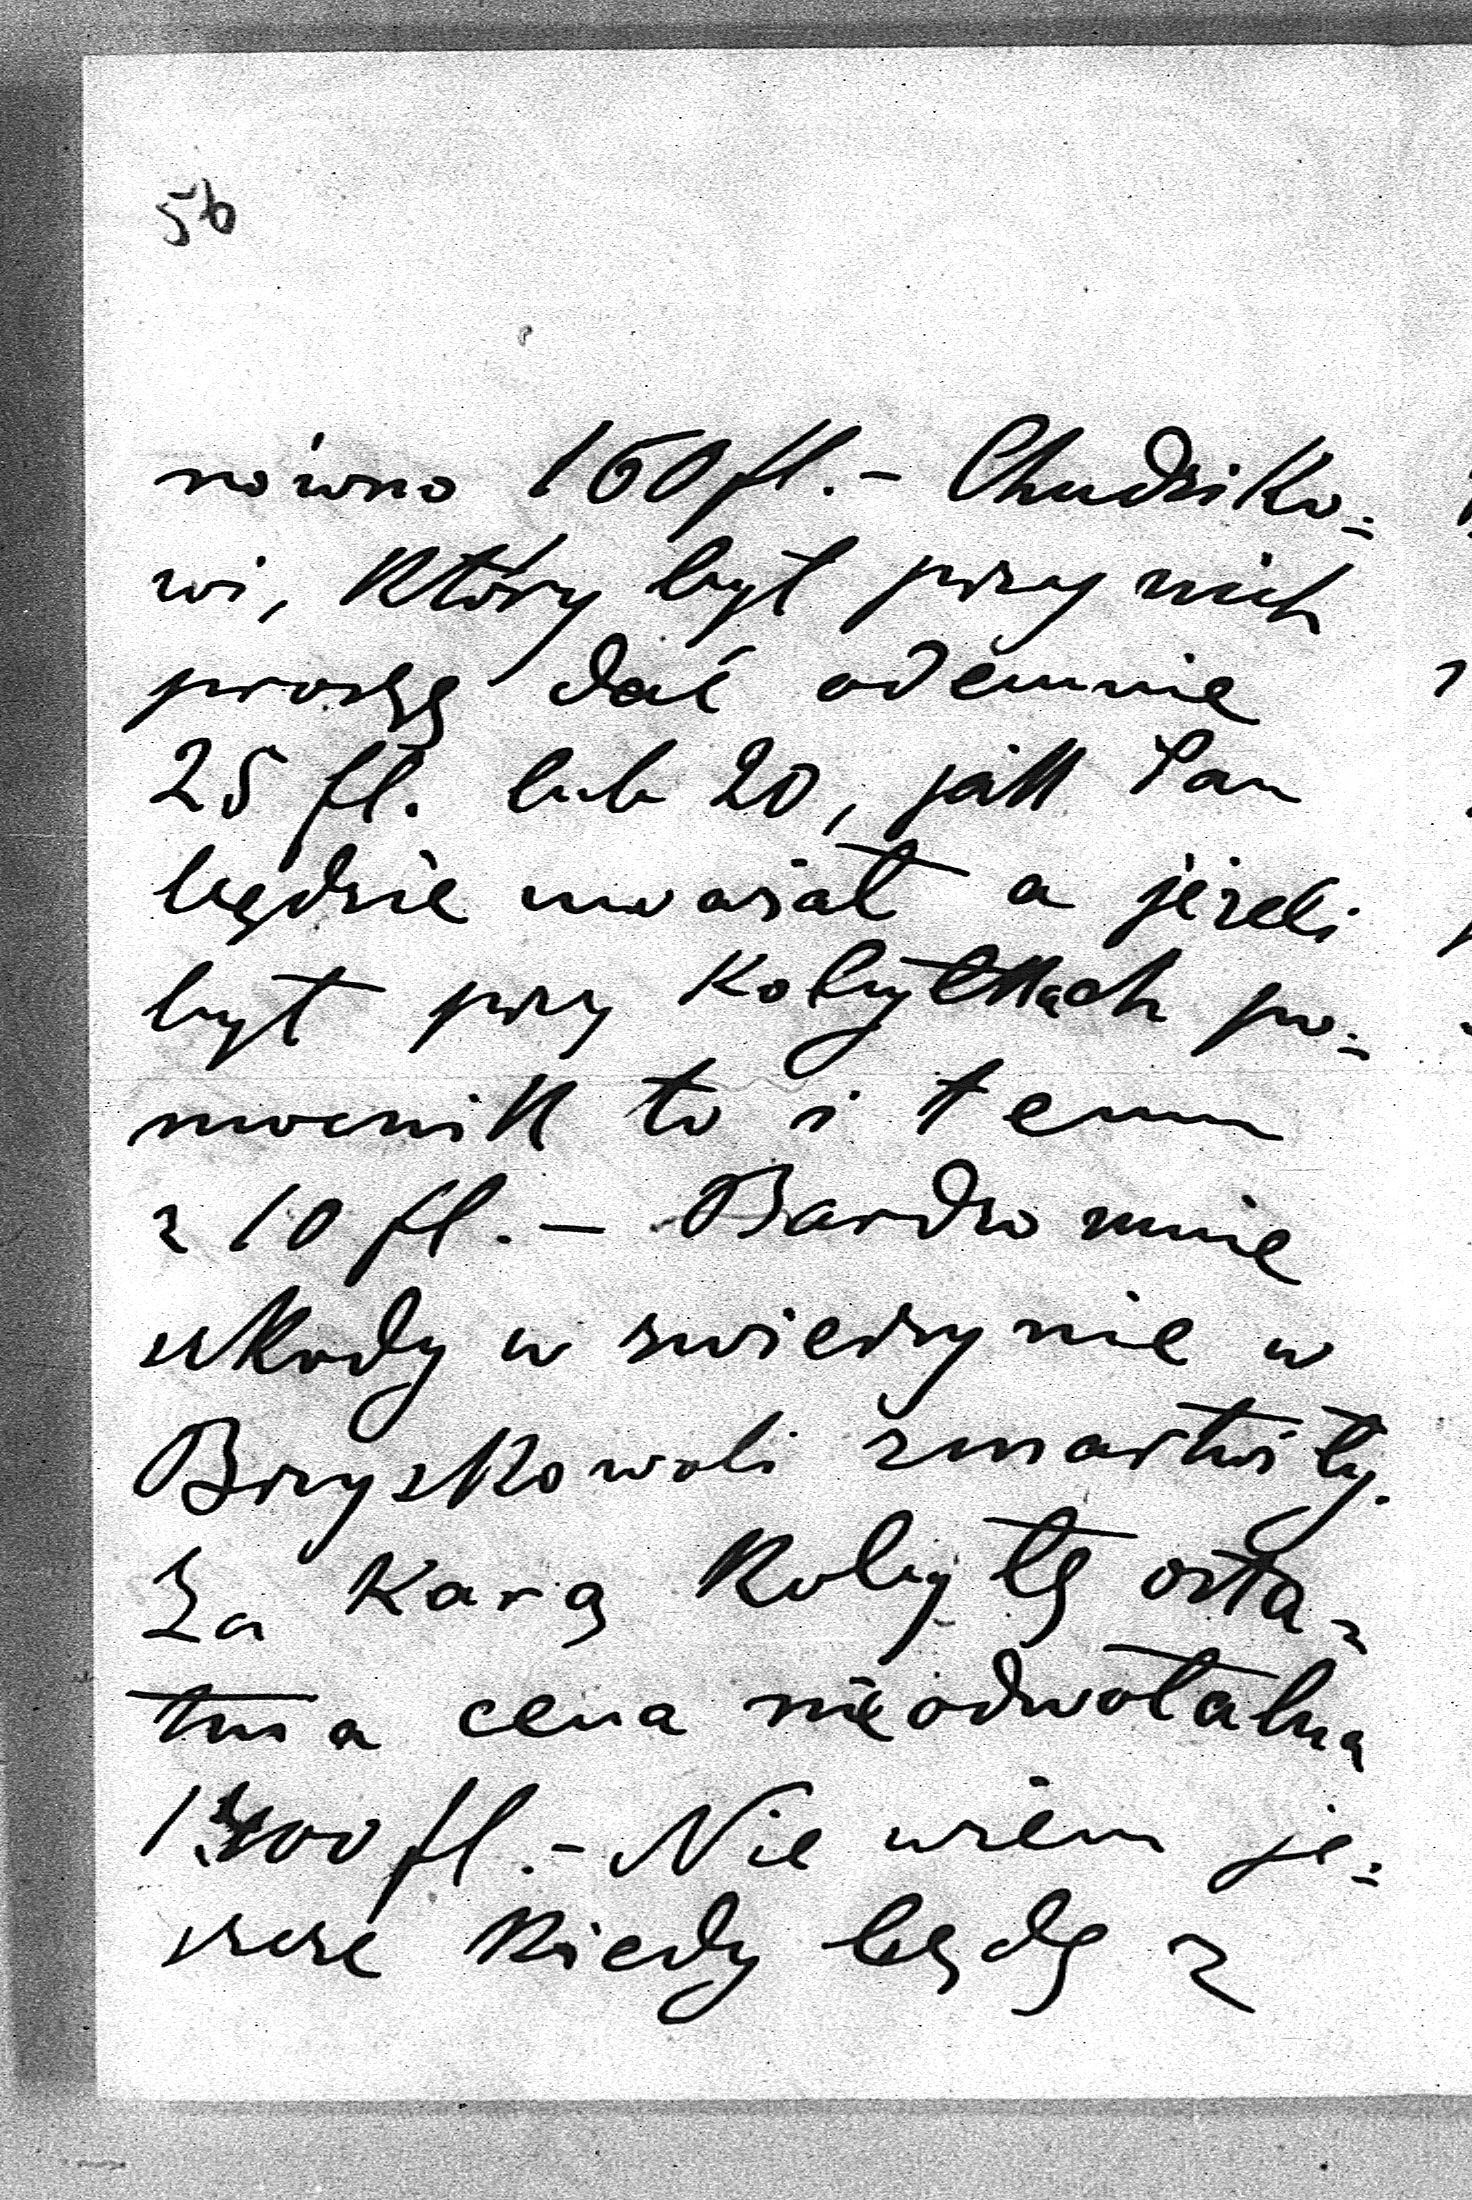 56
równo 160 fl. – Chudziko-
wi, który był przy nich
proszę dać odemnie
25 fl. lub 20, jak Pan
będzie uważał a jeżeli
był przy kobyłkach po-
mocnik to i temu
z 10 fl. – Bardzo mnie
szkody w zwierzynie w
Brzyskowoli zmartwiły.
Za karą kobyłę osta-
tnia cena nieodwołalna
1400 fl. – Nie wiem je-
szcze kiedy będę z